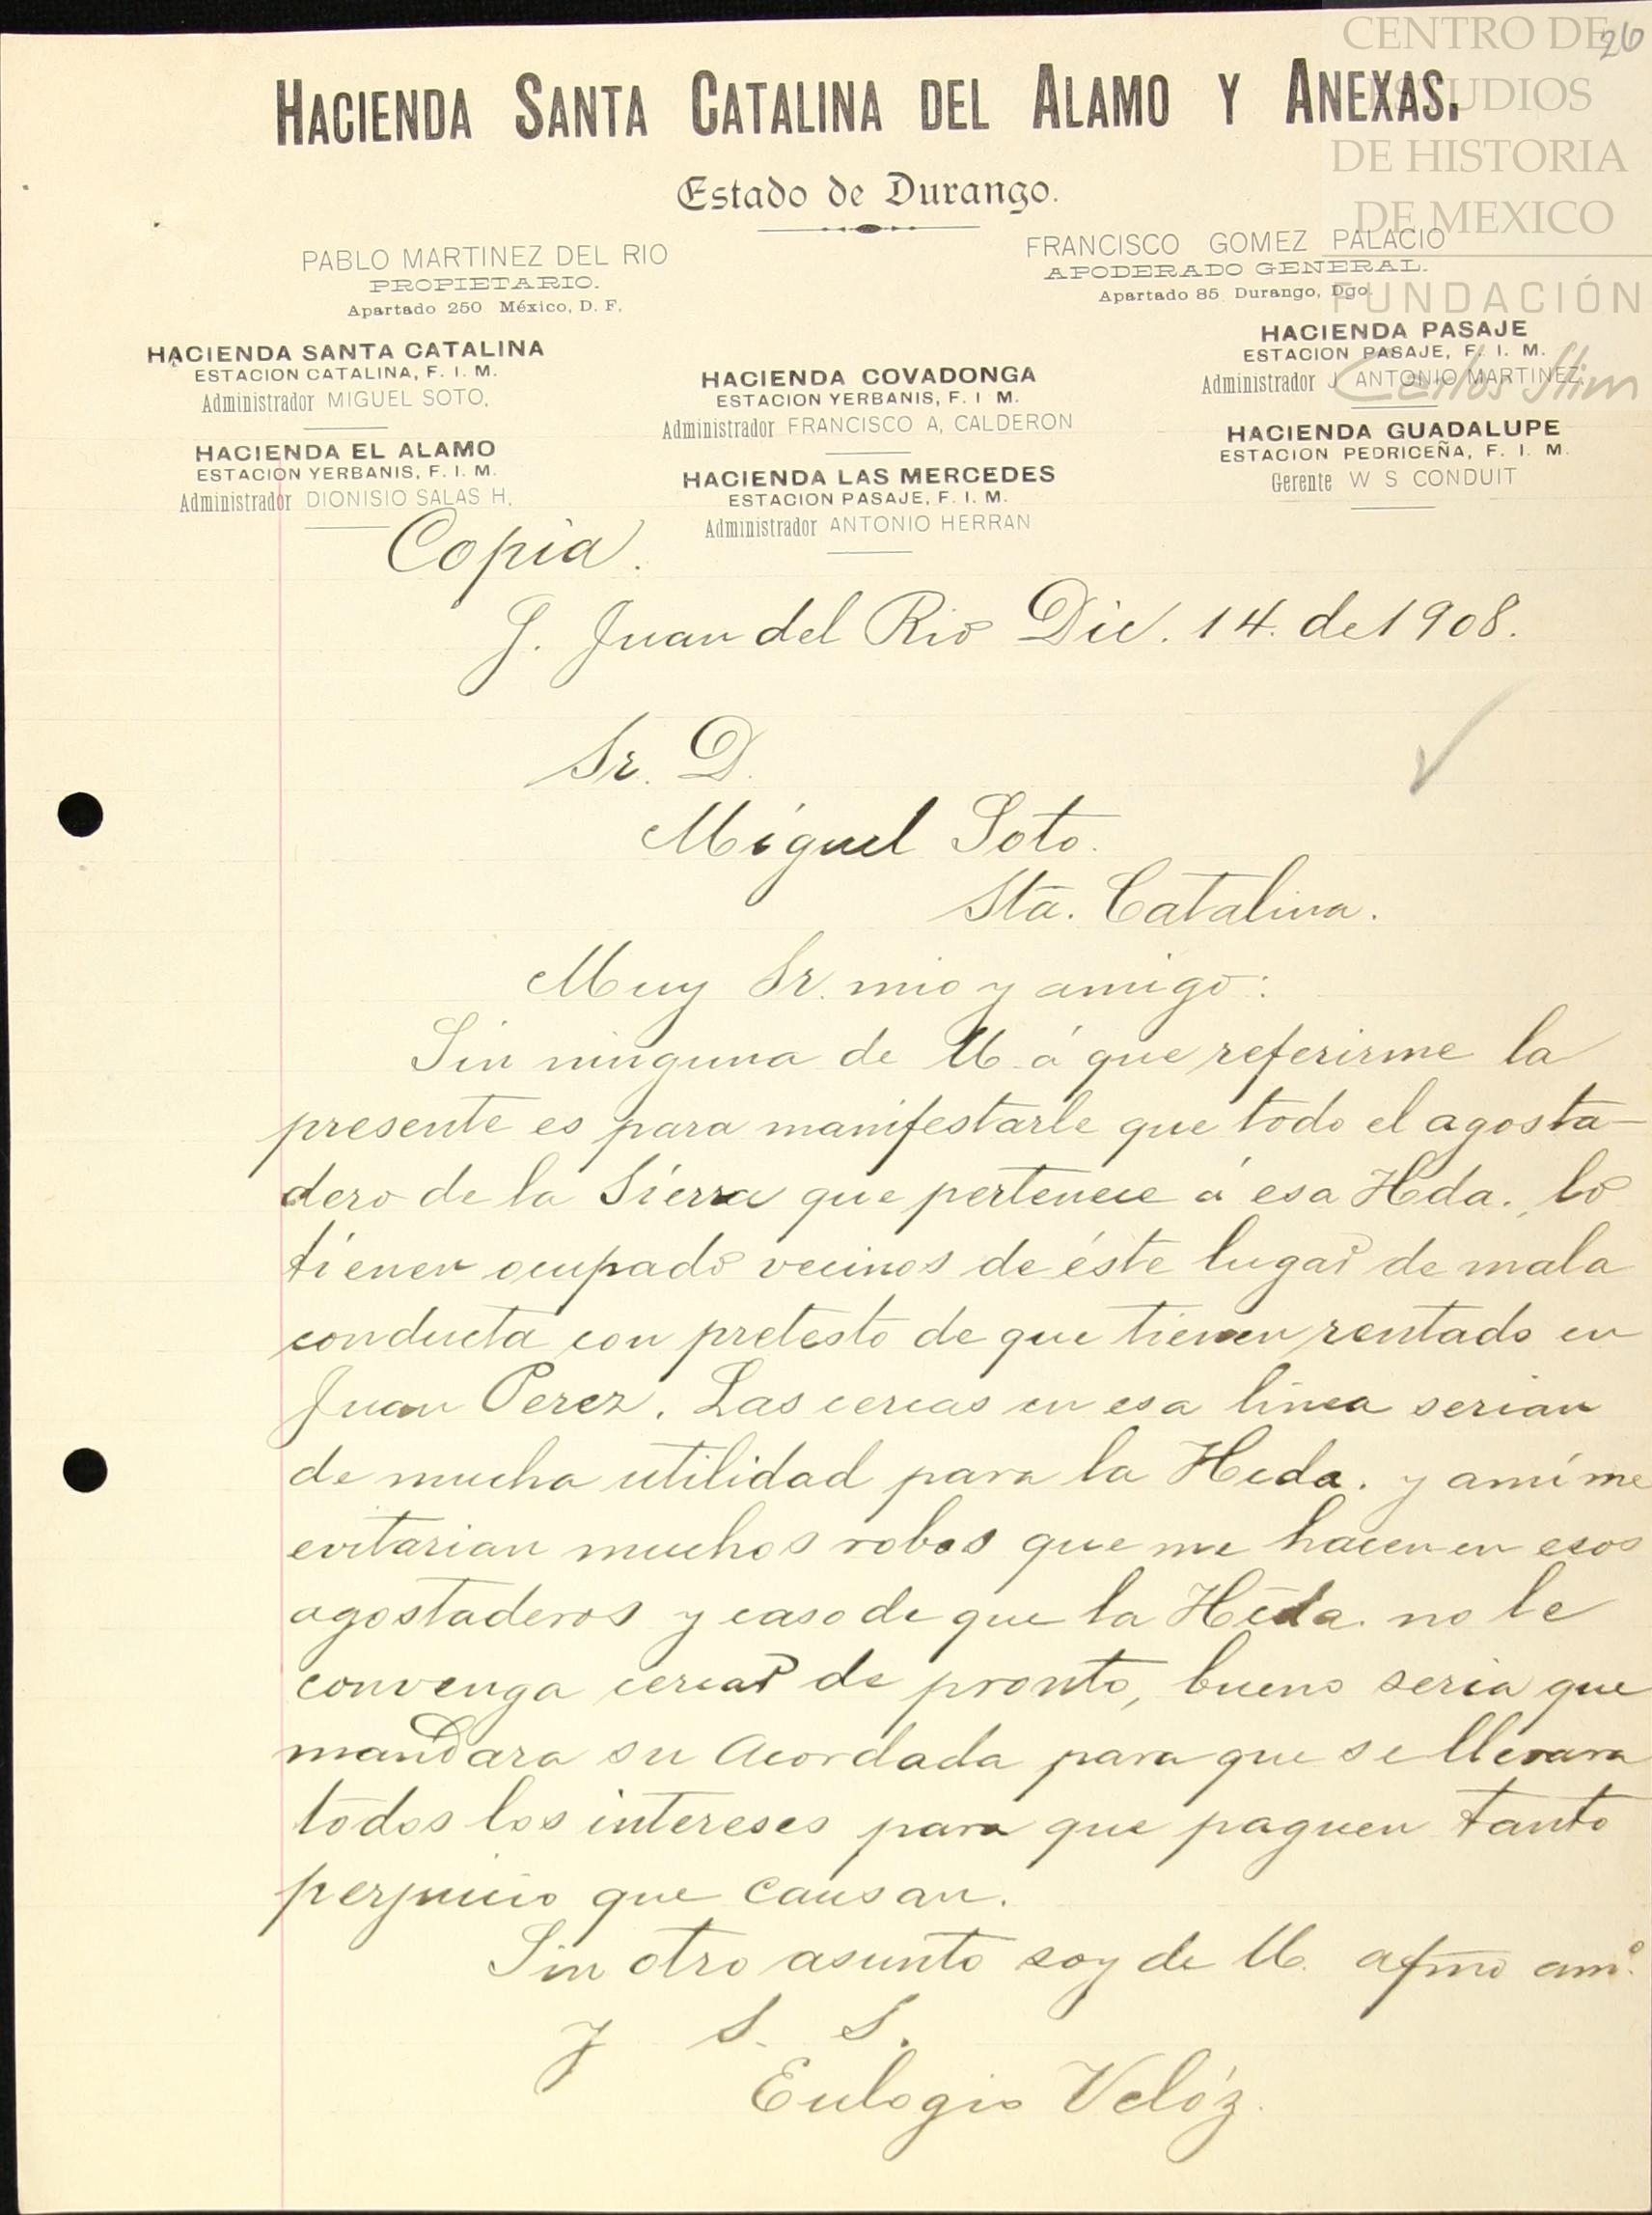 26
CENTRO DE
ESTUDIOS
DE HISTORIA
DE MEXICO
FUNDACIÓN
Carlos Slim
HACIENDA SANTA CATALINA DEL ALAMO Y ANEXAS.
Estado de Durango.
PABLO MARTINEZ DEL RIO
PROPIETARIO.
Apartado 250 México, D. F,
FRANCISCO GOMEZ PALACIO
APODERADO GENERAL.
Apartado 85 Durango, Dgo.
HACIENDA SANTA CATALINA
ESTACION CATALINA, F. I. M.
Administrador MIGUEL SOTO,
HACIENDA EL ALAMO
ESTACION YERBANIS, F. I. M.
Administrador DIONISIO SALAS H,
HACIENDA COVADONGA
ESTACION YERBANIS, F. I M.
Administrador FRANCISCO A, CALDERON
HACIENDA LAS MERCEDES
ESTACION PASAJE, F. I. M.
Administrador ANTONIO HERRAN
HACIENDA PASAJE
ESTACION PASAJE, F. I. M.
Administrador J. ANTONIO MARTINEZ,
HACIENDA GUADALUPE
ESTACION PEDRICEÑA, F. I. M.
Gerente W S CONDUIT
Copia.
S. Juan del Rio Dic. 14. de 1908.
Sr. D.
Miguel Soto.
Sta. Catalina.
Muy Sr. mio y amigo:
Sin ninguna de U. á que referirme la
presente es para manifestarle que todo el agosta-
dero de la Sierra que pertenece á esa Hda., lo
tienen ocupado vecinos de éste lugar de mala
conducta con pretesto de que tienen rentado en
Juan Perez. Las cercas en esa linea serian
de mucha utilidad para la Hcda. y a mí me
evitarian muchos robos que me hacen en esos
agostaderos y caso de que la Hcda. no le
convenga cercar de pronto, bueno seria que
mandara su Acordada para que se llevara
todos los intereses para que paguen tanto
perjuicio que causan.
Sin otro asunto soy de U. afmo am.º
y S. S.
Eulogio Velóz.